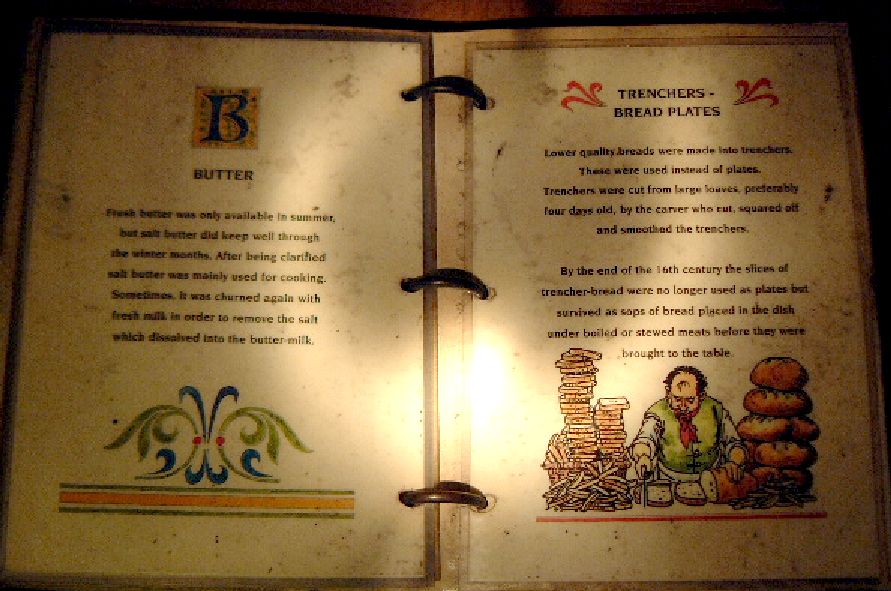 B
BUTTER
Fresh butter was only available in summer,
but salt butter did keep well through
the winter months. After being clarified
salt butter was mainly used for cooking.
Sometimes, it was churned again with
fresh milk in order to remove the salt
which dissolved into the butter-milk.
TRENCHERS -
BREAD PLATES
Lower quality breads were made into trenchers.
These were used instead of plates.
Trenchers were cut from large loaves, preferably
four days old, by the carver who cut, squared off
and smoothed the trenchers.
By the end of the 16th century the slices of
trencher-bread were no longer used as plates but
survived as sops of bread placed in the dish
under boiled or stewed meats before they were
brought to the table.